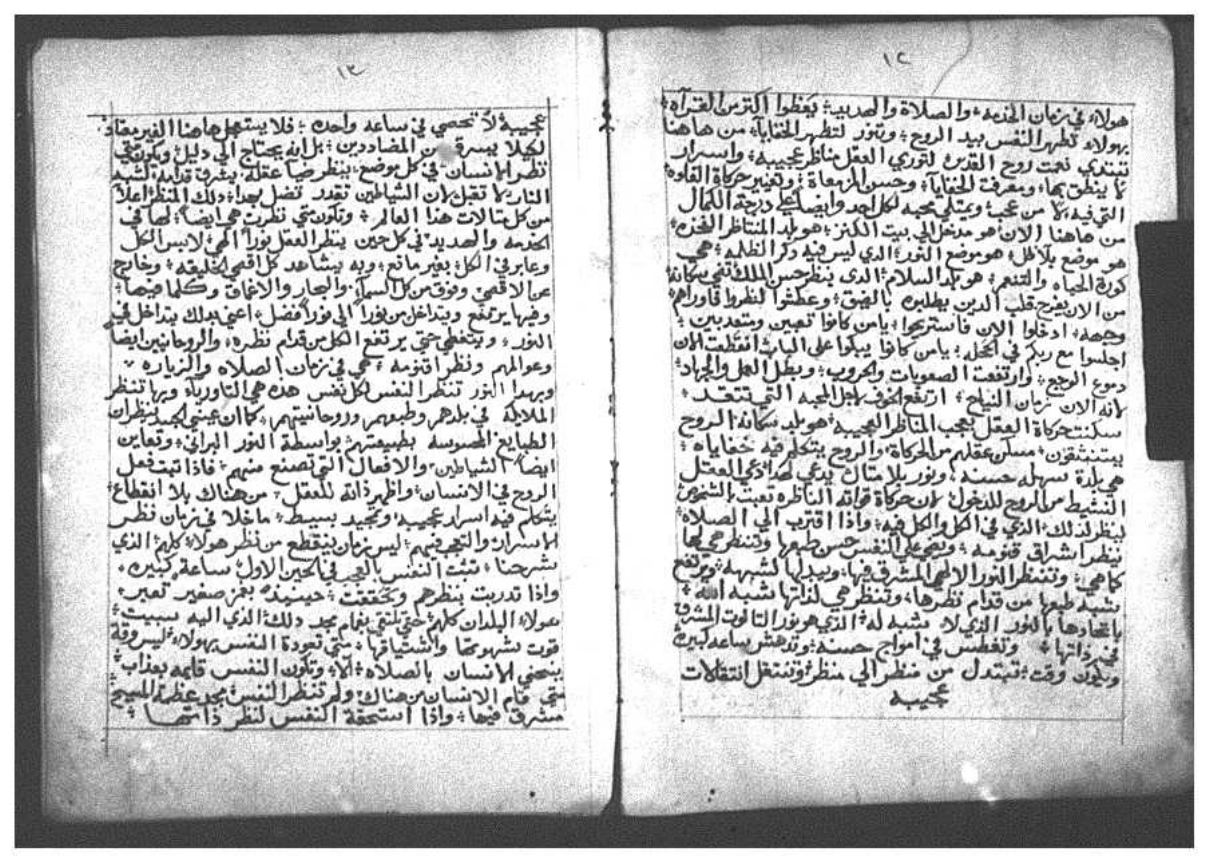 ١٢
هولاء في زمان الخدمة والصلاة والهديد يعظوا اكتر من القراه
بهولاء تطهر النفس بيد الروح وتنور لتظهر الخفايا من هاهنا
تبتدي نعمت روح القدس لتوري العقل مناظر عجيبه واسرار
لا ينطق بها ومعرفت الخفايا وحسن وتغيير حركاة القاوه
التي فيه بلا من عجب ويمتلي محبه لكل احد وايضا على درجة الكمال
من هاهنا الان هو مدخل الي بيت الكنز هو بلد المناظر الفخره
هو موضع بلا ظل هو موضع النور الدي ليس فيه دكر الظلمه هي
كورة الحياه والتنعم هو بلد السلام الدى ينظر حسن الملك سكانه
من الان يفرح قلب الدين يطلبوه بالضيق وعطشوا لنظروا
وجهه ادخلوا الان فاستريحوا يامن كانوا تعبين ومتعدبين
اجلسوا مع ربكم في الحجله يامن كانوا يبكوا على الباب انقطعت الان
دموع الوجع وارتفعت الصعوبات والحروب وبطل العمل والجهاد
لانه الان زمان النياح ارتفع الخوف لاجل المحبه التي تتقد
سكنت حركاة العقل بعجب المناظر العجيبه هو بلد سكانه الروح
يستنشقون مسكن عقلهم من الحركاة والروح يتكلم فيه خفاياه
هي بلدة سهله حسنه ونور بلا متال يدعي لهدا دعي العقل
النشيط من الروح للدخول لان حركاة قواته الناظره تعبت
لينظر لدلك الدي في الكل والكل فيه واذا اقترب الي الصلاه
ينظر اشراق قنومه وهي على النفس حسن طبعها وتنظر هي لها
كما هي وتنظر النور الالهي المشرق فيها ويبدلها لشبهه ويرتفع
شبه طبعها من قدام نظرها وتنظر هي لذاتها شبه الله
باتحادها بالنور الدي لا شبه له الدي هو نور التالوت المشرق
في ذاتها وتغطس في امواج حسنه وتدهش ساعه كبيره
ويكون وقت تبتدل من منظر الي منظر وتنتقل انتقالات
عجيبه
١٣
عجيبة لا تحصي في ساعه واحده فلا يستعجل هاهنا الغير معتاد
لكيلا يسرق من المضاددين بل انه يحتاج الي دليل ويكون متي
نظر الانسان في كل موضع ينظر ضيا عقله يشرق قدامه لشبه
النار لا تقبل لان الشياطين تقدر تضل بهدا دلك المنظر اعلا
من كل متالات هدا العالم وتكون متي نظرت هي ايضا لها في
الخدمه والهديد في كل حين ينظر العقل نورا الهي لابس الكل
وعابر في الكل بغير مانع وبه يشاهد كل اقصي الخليقه وخارج
عن الاقصي وفوق من كل السما والبحار والاعماق وكلما فيها
وفيها يرتفع ويتداخل من نورا الي نورا افضل اعني بدلك يتداخل في
النور ويتغطي حتي يرتفع الكل من قدام نظره والروحانيين ايضا
وعوالمهم ونظر اقنومه هي في زمان الصلاه والزياره
وبهدا النور تنظر النفس لكل نفس هده هي التاوريا وبها تنظر
الملايكه في بلدهم وطبعهم وروحانيتهم كما ان عيني الجسد ينظران
الطبايع المحسوسه بطبيعتهم بواسطة النور البراني وتعاين
ايضا الشياطين والافعال التي تصنع منهم فاذا تبت فعل
الروح في الانسان واظهر ذاته للعقل من هناك بلا انقطاع
يتكلم فيه اسرار عجيبه وتمجيد بسيط ماخلا في زمان نظر
الاسرار والتعجب فيهم ليس زمان ينقطع من نظر هولاء كلهم الدي
شرحنا تبتت النفس بالعجب في الحين الاول ساعة كبيره
واذا تدربت بنظرهم وتحققت حينيذ بغمز صغير تعبر
هولاء البلدان كلهم حتي تلتقي بغمام مجد دلك الدي اليه سبيت
قوت شهوتها واشتياقها متي تعودة النفس بهولاء ليس وقت
ينحني الانسان بالصلاه الا وتكون النفس قايمه بعذاب
متي قام الانسان من هناك ولم تنظر النفس مجد عظمة المسيح
مشرق فيها واذا استحقة النفس لنظر ذاتها